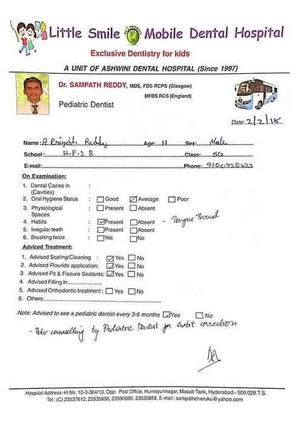 Little Smile Mobile Dental Hospital
Exclusive Dentistry for kids
A UNIT OF ASHWINI DENTAL HOSPITAL (Since 1997)
Dr. SAMPATH REDDY, MDS, FDS RCPS (Glasgow)
MFDS RCS (England)
Pediatric Dentist
Date: 2/2/18
Name: Reddy Age: 11 Sex: Male
School: H.P.S B Class:
E-mail: Phone:
On Examination:
1. Dental Caries in :
(Cavities)
2. Oral Hygiene Status : Good Average Poor
3. Physiological : Present Absent
Spaces
4. Habits : Present Absent - Tongue Thrust
5. Irregular teeth : Present Absent
6. Brushing twice : Yes No
Adviced Treatment:
1. Advised Scaling/Cleaning : Yes No
2. Advised Flouride application: Yes No
3. Advised Pit & Fissure Sealants: Yes No
4. Advised Filling in
5. Advised Orthodontic treatment : Yes No
6. Others:
Note: Advised to see a pediatric dentist every 3-6 months : Yes No
- counselling by Pediatric Dentist for habit correction
Hospital Address: H.No. 10-3-304/13, Opp: Post Office, Humayunnagar, Masab Tank, Hyderabad - 500 028.T.S.
Tel: (C) 23537612, 23535656, 23590690, 23535858, E-mail : sampathcheruku@yahoo.com